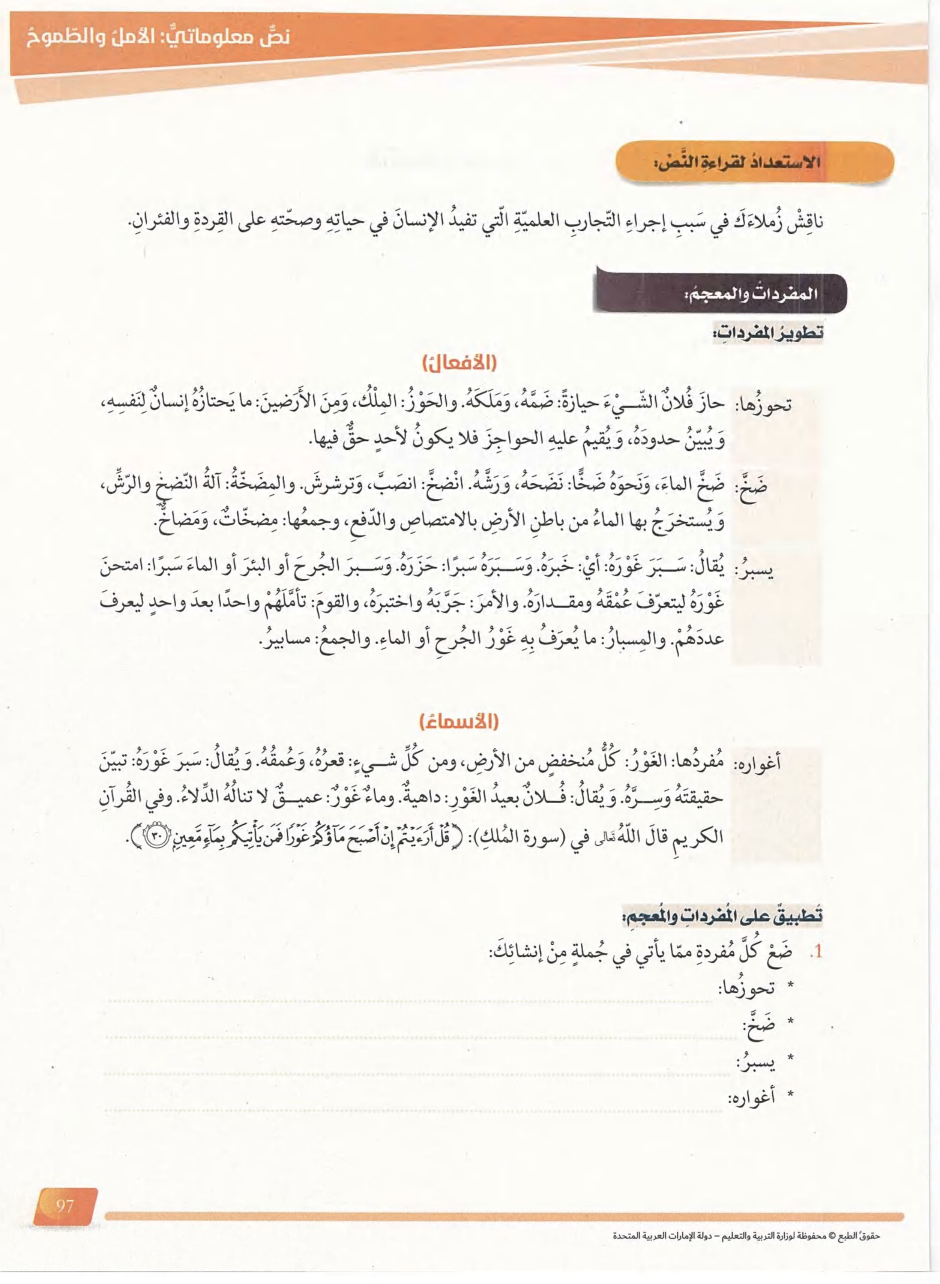 نصٌّ معلوماتيٌّ: الأملُ والطّموحُ
الاستعدادُ لقراءةِ النَّصِّ:
ناقِشْ زُملاءَكَ في سَببِ إجراءِ التّجاربِ العلميّةِ الّتي تفيدُ الإنسانَ في حياتِهِ وصحّتهِ على القِردةِ والفئرانِ.
المفرداتُ والمعجمُ:
تطويرُ المفرداتِ:
(الأفعالُ)
تحوزُها: حازَ فُلانٌ الشّيْءَ حيازةً: ضَمَّهُ، وَمَلَكَهُ. والحَوْزُ: المِلْكُ، وَمِنَ الأَرَضينَ: ما يَحتازُهُ إنسانٌ لِنَفسِهِ،
وَيُبيّنُ حدودَهُ، وَيُقيمُ عليهِ الحواجِزَ فلا يكونُ لأحدٍ حقٌّ فيها.
ضَخَّ: ضَخَّ الماءَ، وَنَحوَهُ ضَخًّا: نَضَحَهُ، وَرَشَّهُ. انْضخَّ: انصَبَّ، وَترشرشَ. والمِضَخّةُ: آلةُ النّضخِ والرّشِّ،
وَيُستخرَجُ بها الماءُ من باطنِ الأرضِ بالامتصاصِ والدّفعِ، وجمعُها: مِضخّاتٌ، وَمَضاخٌّ.
يسبرُ: يُقالُ: سَبَرَ غَوْرَهُ: أيْ: خَبَرَهُ. وَسَبَرَهُ سَبرًا: حَزَرَهُ. وَسَبرَ الجُرحَ أو البئرَ أو الماءَ سَبرًا: امتحنَ
غَوْرَهُ ليتعرّفَ عُمْقَهُ ومقدارَهُ. والأمرَ: جَرَّبَهُ واختبرَهُ، والقومَ: تأمَّلَهُمْ واحدًا بعدَ واحدٍ ليعرفَ
عددَهُمْ. والمِسبارُ: ما يُعرَفُ بِهِ غَوْرُ الجُرحِ أو الماءِ. والجمعُ: مسابيرُ.
(الأسماءُ)
أغواره: مُفردُها: الغَوْرُ: كُلُّ مُنخفضٍ من الأرضِ، ومن كُلِّ شيءٍ: قعرُهُ، وَعُمقُهُ. وَيُقالُ: سَبرَ غَوْرَهُ: تبيّنَ
حقيقتَهُ وَسِرَّهُ. وَيُقالُ: فُلانٌ بعيدُ الغَوْرِ: داهيةٌ. وماءٌ غَوْرٌ: عميقٌ لا تنالُهُ الدِّلاءُ. وفي القُرآنِ
الكريمِ قالَ اللّهُ تعالى في (سورة المُلكِ): ﴿قُلْ أَرَءَيْتُمْ إِنْ أَصْبَحَ مَآؤُكُمْ غَوْرًا فَمَن يَأْتِيكُم بِمَآءٍ مَّعِينٍۭ ٣٠﴾.
تَطبيقٌ على المُفرداتِ والمُعجمِ:
1. ضَعْ كُلَّ مُفردةٍ ممّا يأتي في جُملةٍ مِنْ إنشائِكَ:
* تحوزُها:
* ضَخَّ:
* يسبرُ:
* أغواره:
97
حقوقُ الطبع © محفوظة لوزارة التربية والتعليم – دولة الإمارات العربية المتحدة